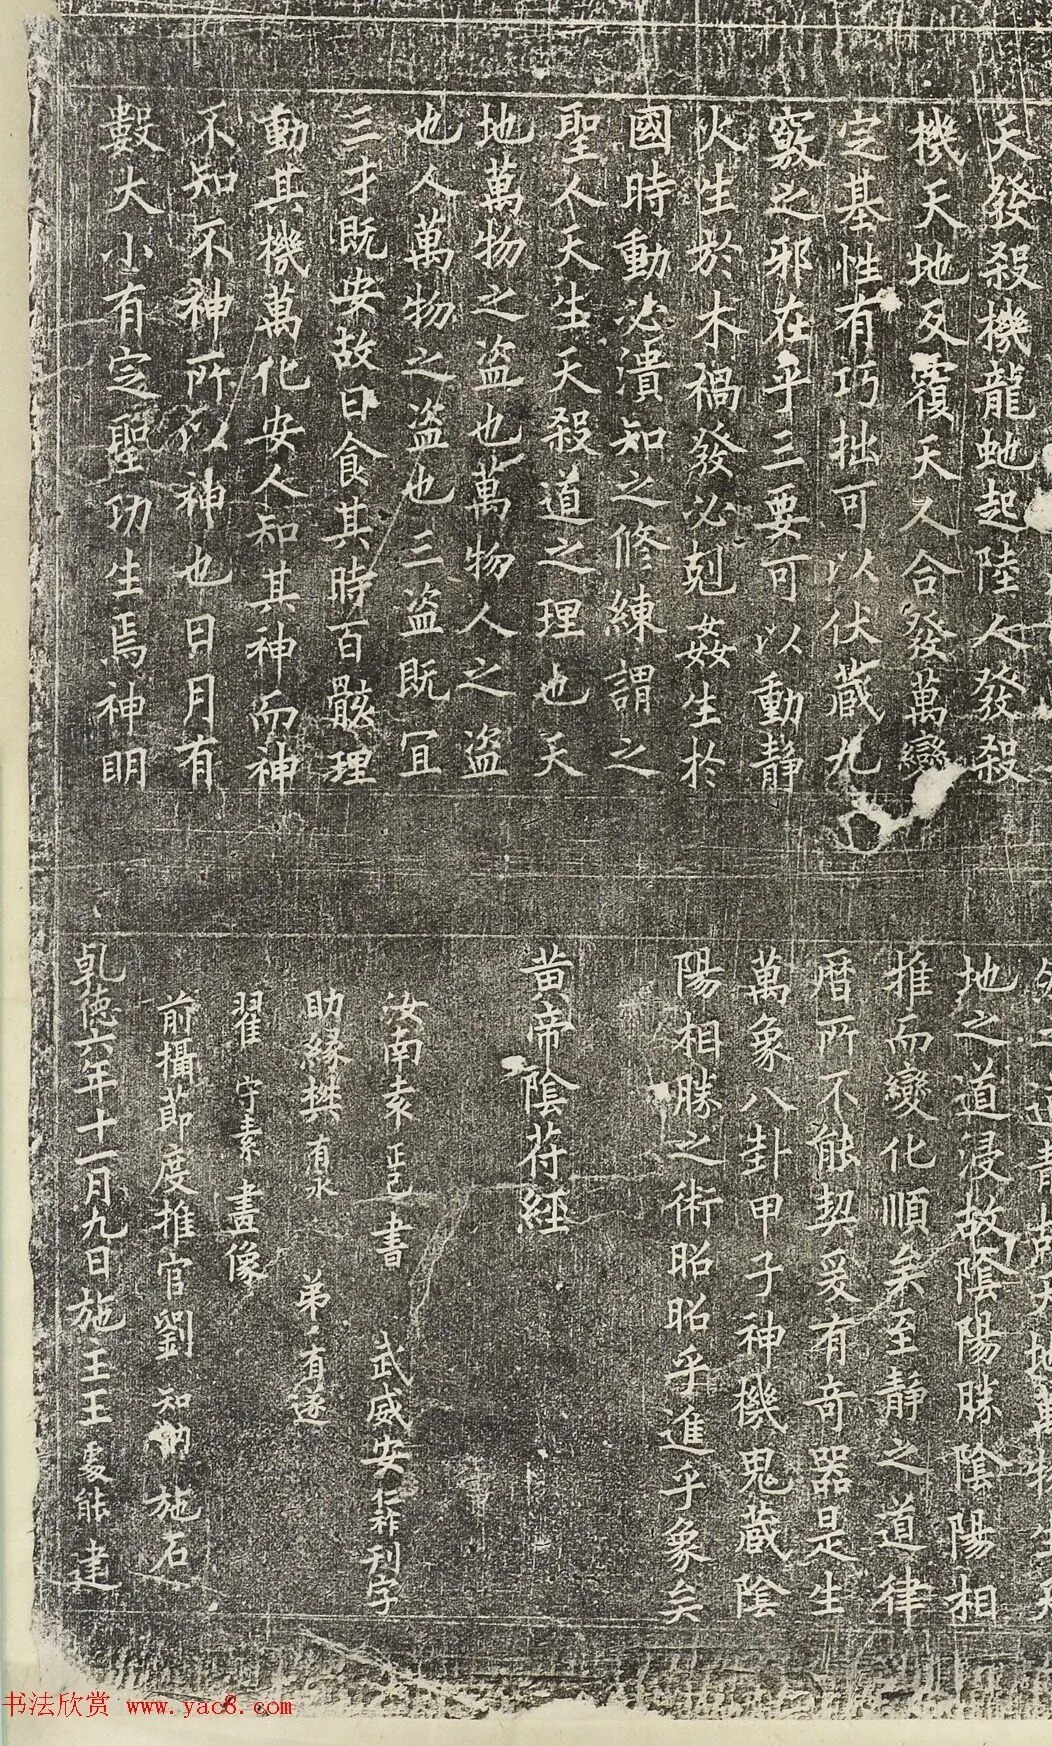 天發殺機龍虵起陸人發殺
機天地反覆天人合發萬變
定基性有巧拙可以伏藏九
竅之邪在乎三要可以動靜
火生於木禍發必剋姦生於
國時動必潰知之修練謂之
聖人天生天殺道之理也天
地萬物之盗也萬物人之盗
也人萬物之盗也三盗既宜
三才既安故曰食其時百骸理
動其機萬化安人知其神而神
不知不神所以神也日月有
數大小有定聖功生焉神明
地之道浸故陰陽勝陰陽相
推而變化順矣至靜之道律
曆所不能契爰有奇器是生
萬象八卦甲子神機鬼藏陰
陽相勝之術昭昭乎進乎象矣
黄帝陰苻経
汝南袁正己書 武威安仁祚刊字
助緣樊有永 弟有遂
翟守素畫像
前攝節度推官劉知訥施石
乹德六年十一月九日施主王處能建
书法欣赏 www.yac8.com